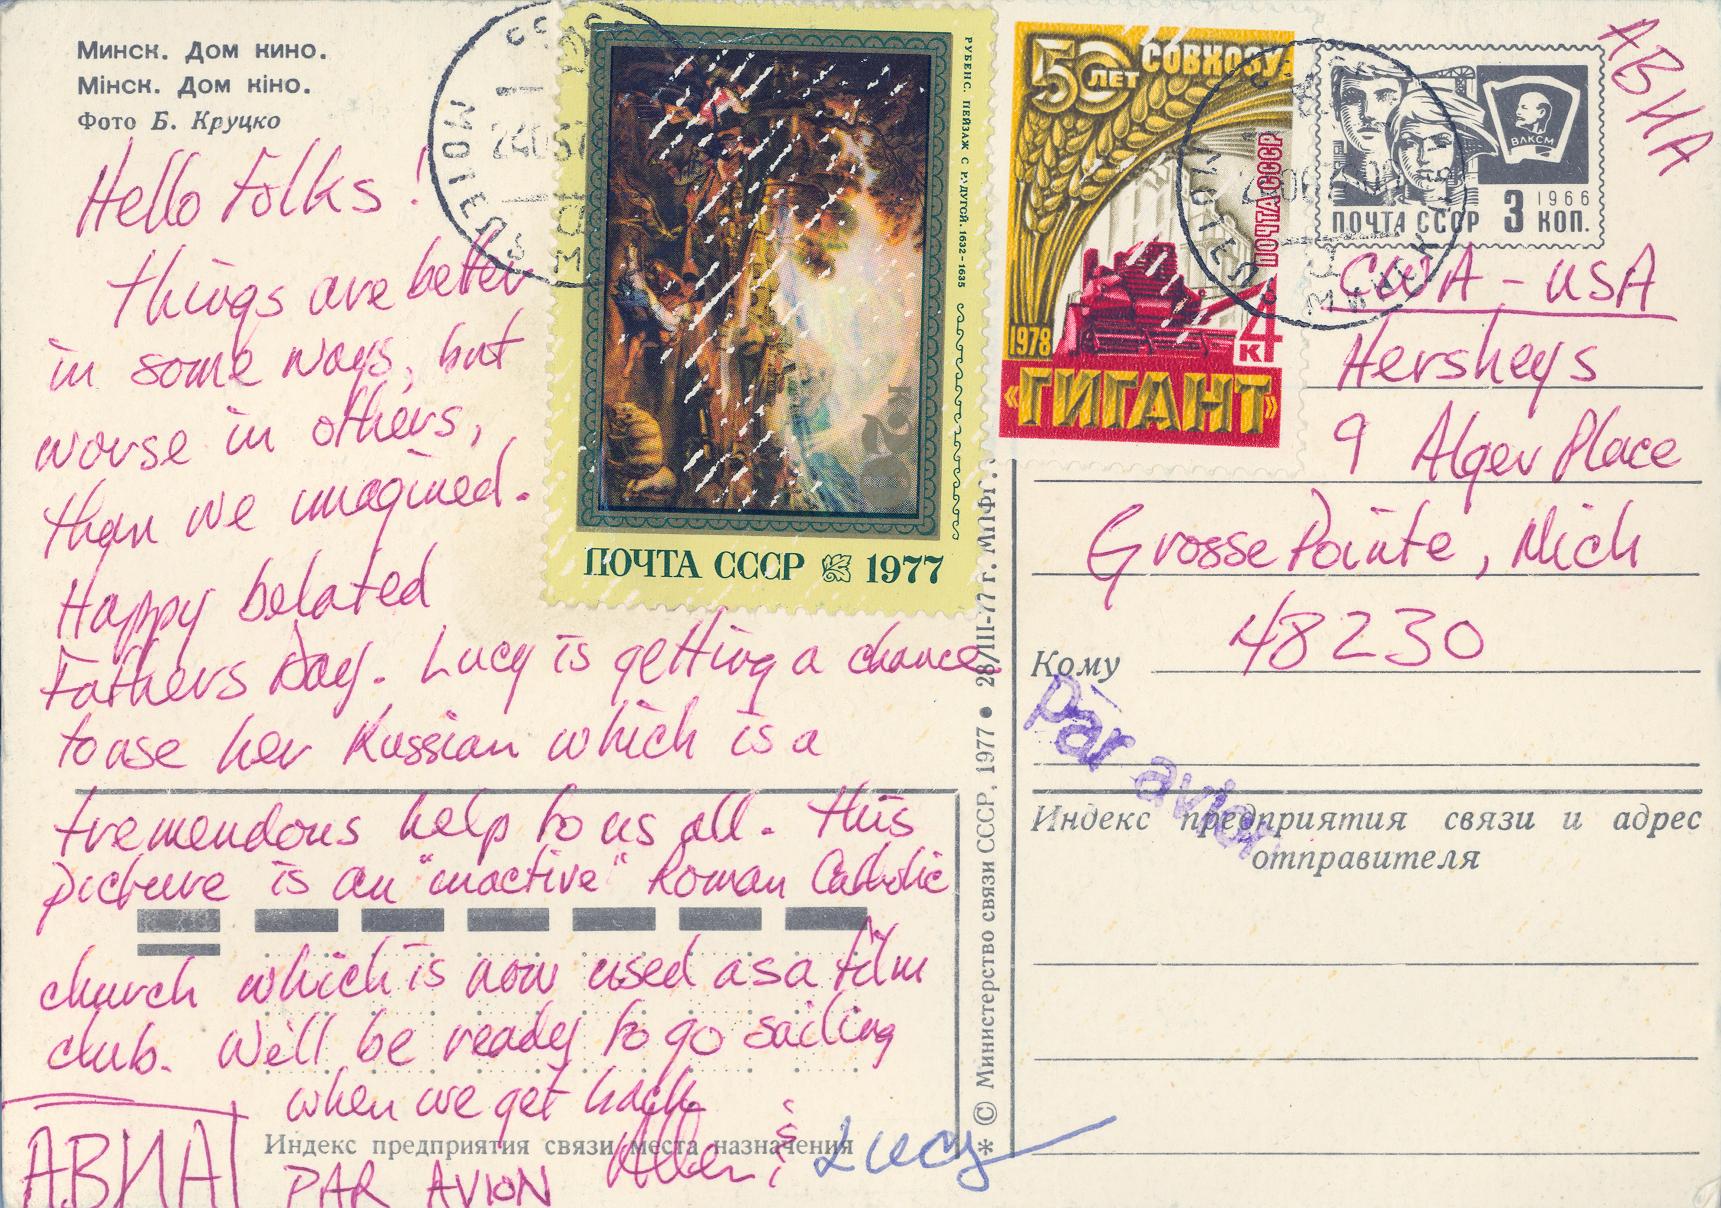 Минск. Дом кино.
Мінск. Дом кіно.
Фото Б. Круцко
Hello Folks!
Things are better
in some ways, but
worse in others,
than we imagined.
Happy belated
Fathers Day. Lucy is getting a chance
to use her Russian which is a
tremendous help to us all. This
picture is an "inactive" Roman Catholic
church which is now used as a film
club. We'll be ready to go sailing
when we get back
Allen &
Lucy
АВИА
PAR AVION
Индекс предприятия связи места назначения
РУБЕНС. ПЕЙЗАЖ С РАДУГОЙ. 1632-1635
к20
ПОЧТА СССР 1977
50 ЛЕТ СОВХОЗУ
ПОЧТА СССР
1978
4
К
«ГИГАНТ»
ВЛКСМ
1966
ПОЧТА СССР 3 КОП.
АВИА
CWA - USA
Hersheys
9 Alger Place
Grosse Pointe, Mich
48230
Кому
Par avion
Индекс предприятия связи и адрес
отправителя
* © Министерство связи СССР, 1977 • 28/III-77 г. МПФГ.